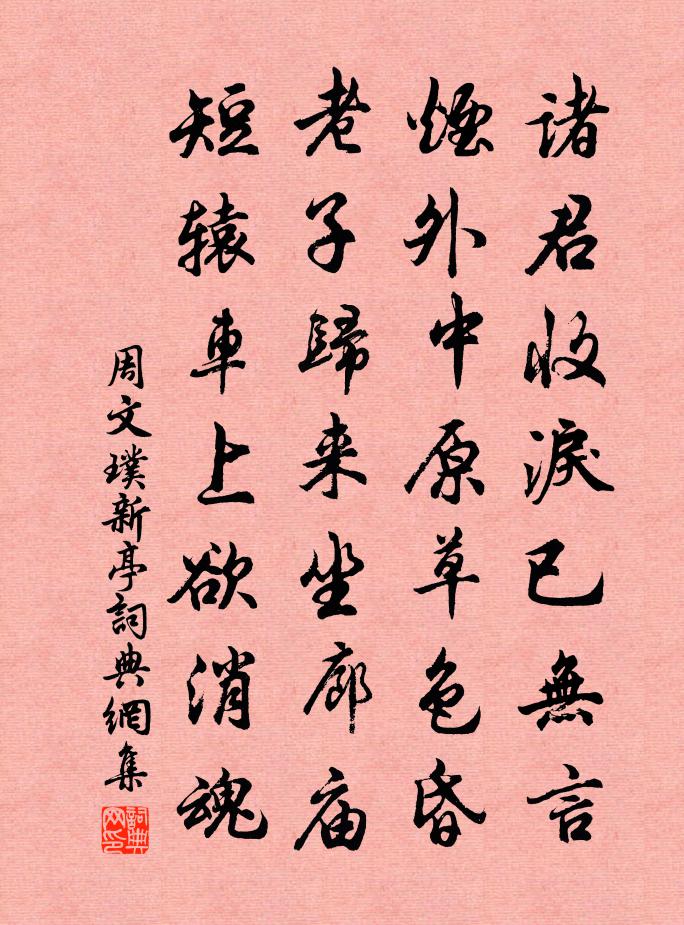 諸君收淚已無言
煙外中原草色昏
老子歸来坐廊庙
短辕車上欲消魂
周文璞新亭詞典網集
詞典网印